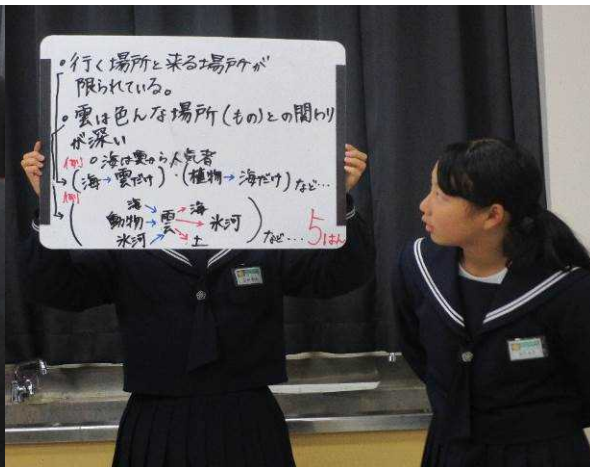 ・行く場所と来る場所が
限られている。
・雲は色んな場所(もの)との関わり
が深い
(例)
○海は雲から人気者
(海→雲だけ)・(植物→海だけ)など…
(例)
海 → 雲 → 海
動物 → 雲 → 氷河
氷河 → 雲 → 土
など…
5はん